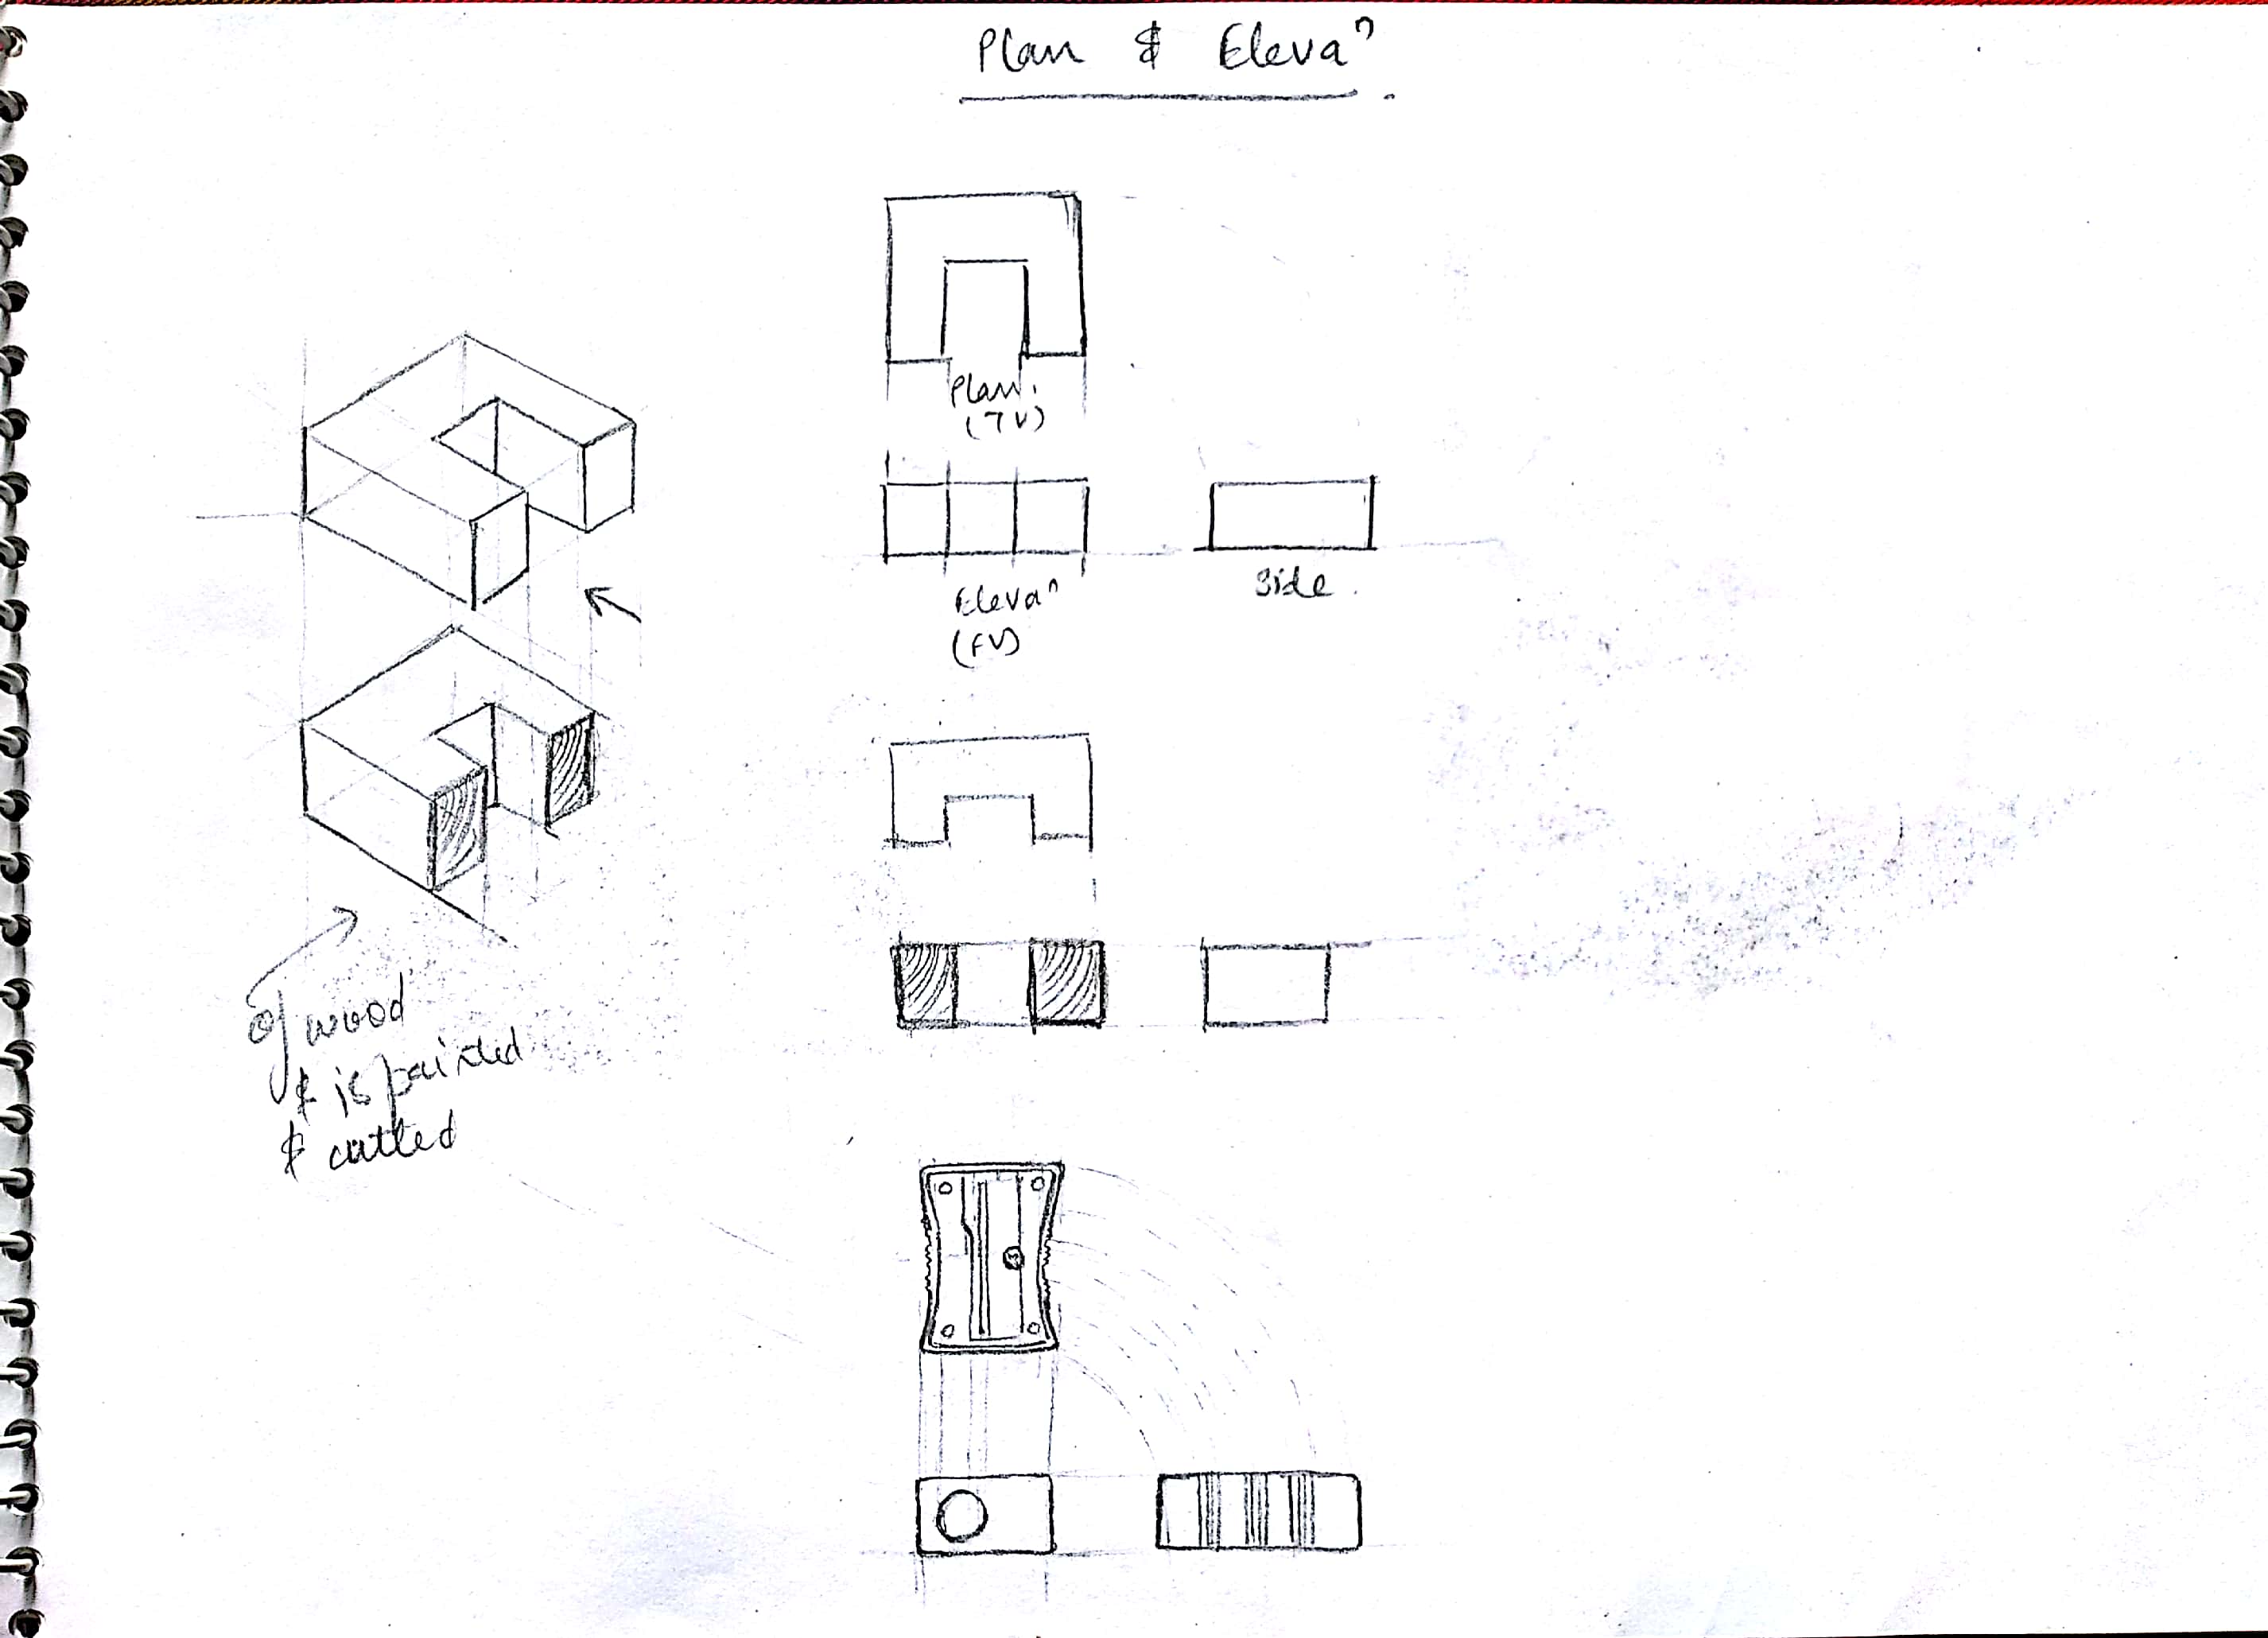 Plan & Elevaⁿ
Plan.
(TV)
Elevaⁿ
(FV)
Side.
of wood
& is painted
& cutted